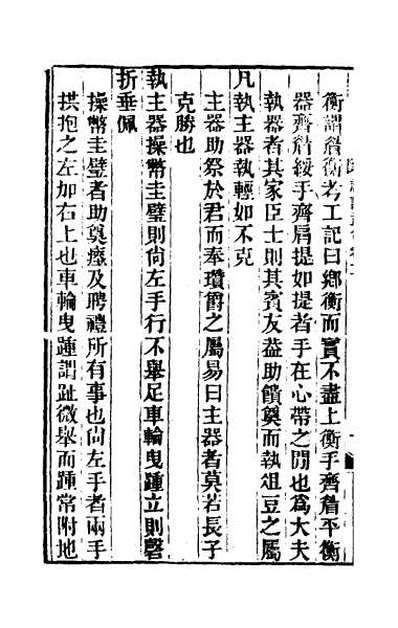 衡謂簷衡考工記曰鄉衡而實不盡上衡手齊簷平衡
器齊簷綏手齊肩提如提者手在心帶之閒也為大夫
執器者其家臣士則其賓友葢助饋奠而執俎豆之屬
凡執主器執輕如不克
主器助祭於君而奉瓚爵之屬易曰主器者莫若長子
克勝也
執主器操幣圭璧則尙左手行不舉足車輪曳踵立則磬
折垂佩
操幣圭璧者助奠瘞及聘禮所有事也尙左手者兩手
拱抱之左加右上也車輪曳踵謂趾微舉而踵常附地